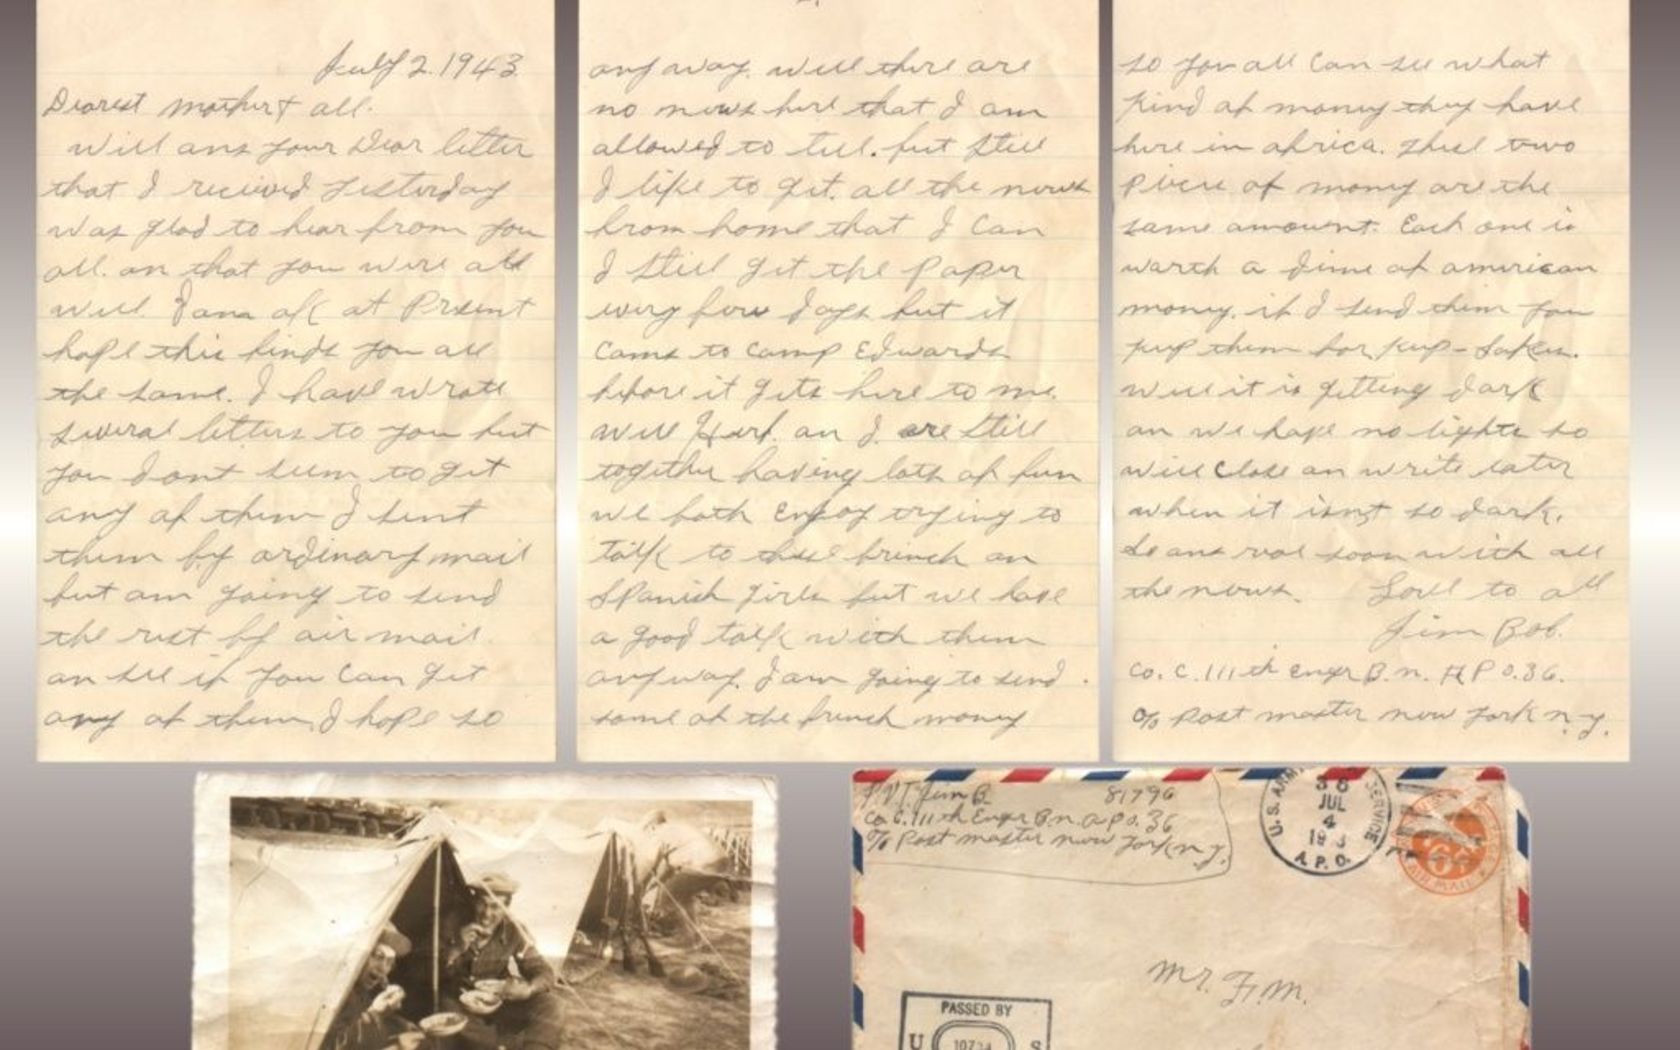 July 2. 1943
Dearest mother & all.
will ans your Dear letter
that I recieved yesterday
was glad to hear from you
all. an that you were all
well. I am ok at Present
hope this finds you all
the same. I have wrote
several letters to you but
you dont seem to get
any of them I sent
them by ordinary mail
but am going to send
the rest by air mail
an see if you can get
any of them, I hope so
2.
any way. well there are
no news here that I am
allowed to tell. but still
I like to get. all the news
from home that I can
I still get the Paper
every few days but it
Came to Camp Edwards
before it gets here to me.
well Herb. an I. are still
together having lots of fun
we both Enjoy trying to
talk to these french an
Spanish girls but we have
a good talk with them
anyway. I am going to send.
some of the french money
so you all Can see what
kind of money they have
here in africa. these two
Piece of money are the
same amount. Each one is
worth a dime of american
money. if I send them you
keep them for keep-saken.
well it is getting dark
an we have no lights so
will Close an write later
when it isnt so dark.
so ans real soon with all
the news. Love to all
Jim Bob.
Co. C. 111th Engr B.n. A P O. 36.
c/o Post master new york n-y.
PVT. Jim B. 81796
Co C. 111th Engr B.n. a P O. 36
c/o Post master new York n.y.
U.S. ARMY SERVICE
JUL
4
A.P.O.
6¢
AIR MAIL
Mr. F.M.
PASSED BY
U S